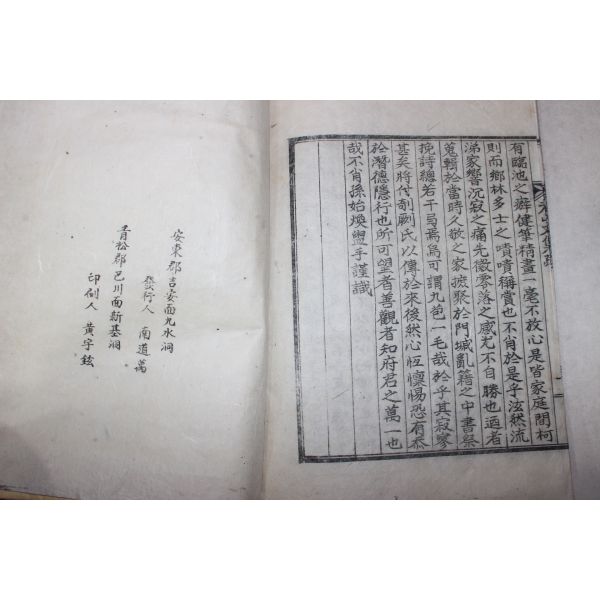 有臨池之癖健筆精畫一毫不放心是皆家庭間柯
則而鄕林多士之嘖嘖稱賞也不肖於是乎泫然流
涕家響沉寂之痛先徽零落之感尤不自勝也迺者
蒐輯於當時久敬之家摭聚於門墄亂籍之中書祭
挽詩總若干焉焉可謂九苞一毛哉於乎其寂寥
甚矣將付剞劂氏以傳於來後然心恆懍惕恐有忝
於潛德隱行也所可望者善觀者知府君之萬一也
哉不肖孫始煥盥手謹識
安東郡吉安面九水洞
發行人 南道萬
靑松郡巴川面新基洞
印刷人 黃宇鉉